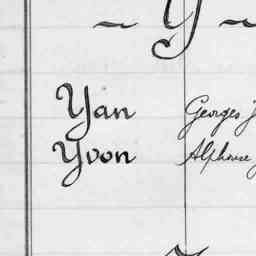 ~ Y ~
Yan Georges J
Yvon Alphonse J